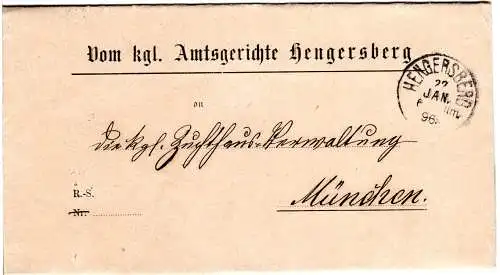 Vom kgl. Amtsgerichte Hengersberg
HENGERSBERG
22
JAN.
96.
an
die kgl. Zuchthaus-Verwaltung
München.
R.-S.
Nr.